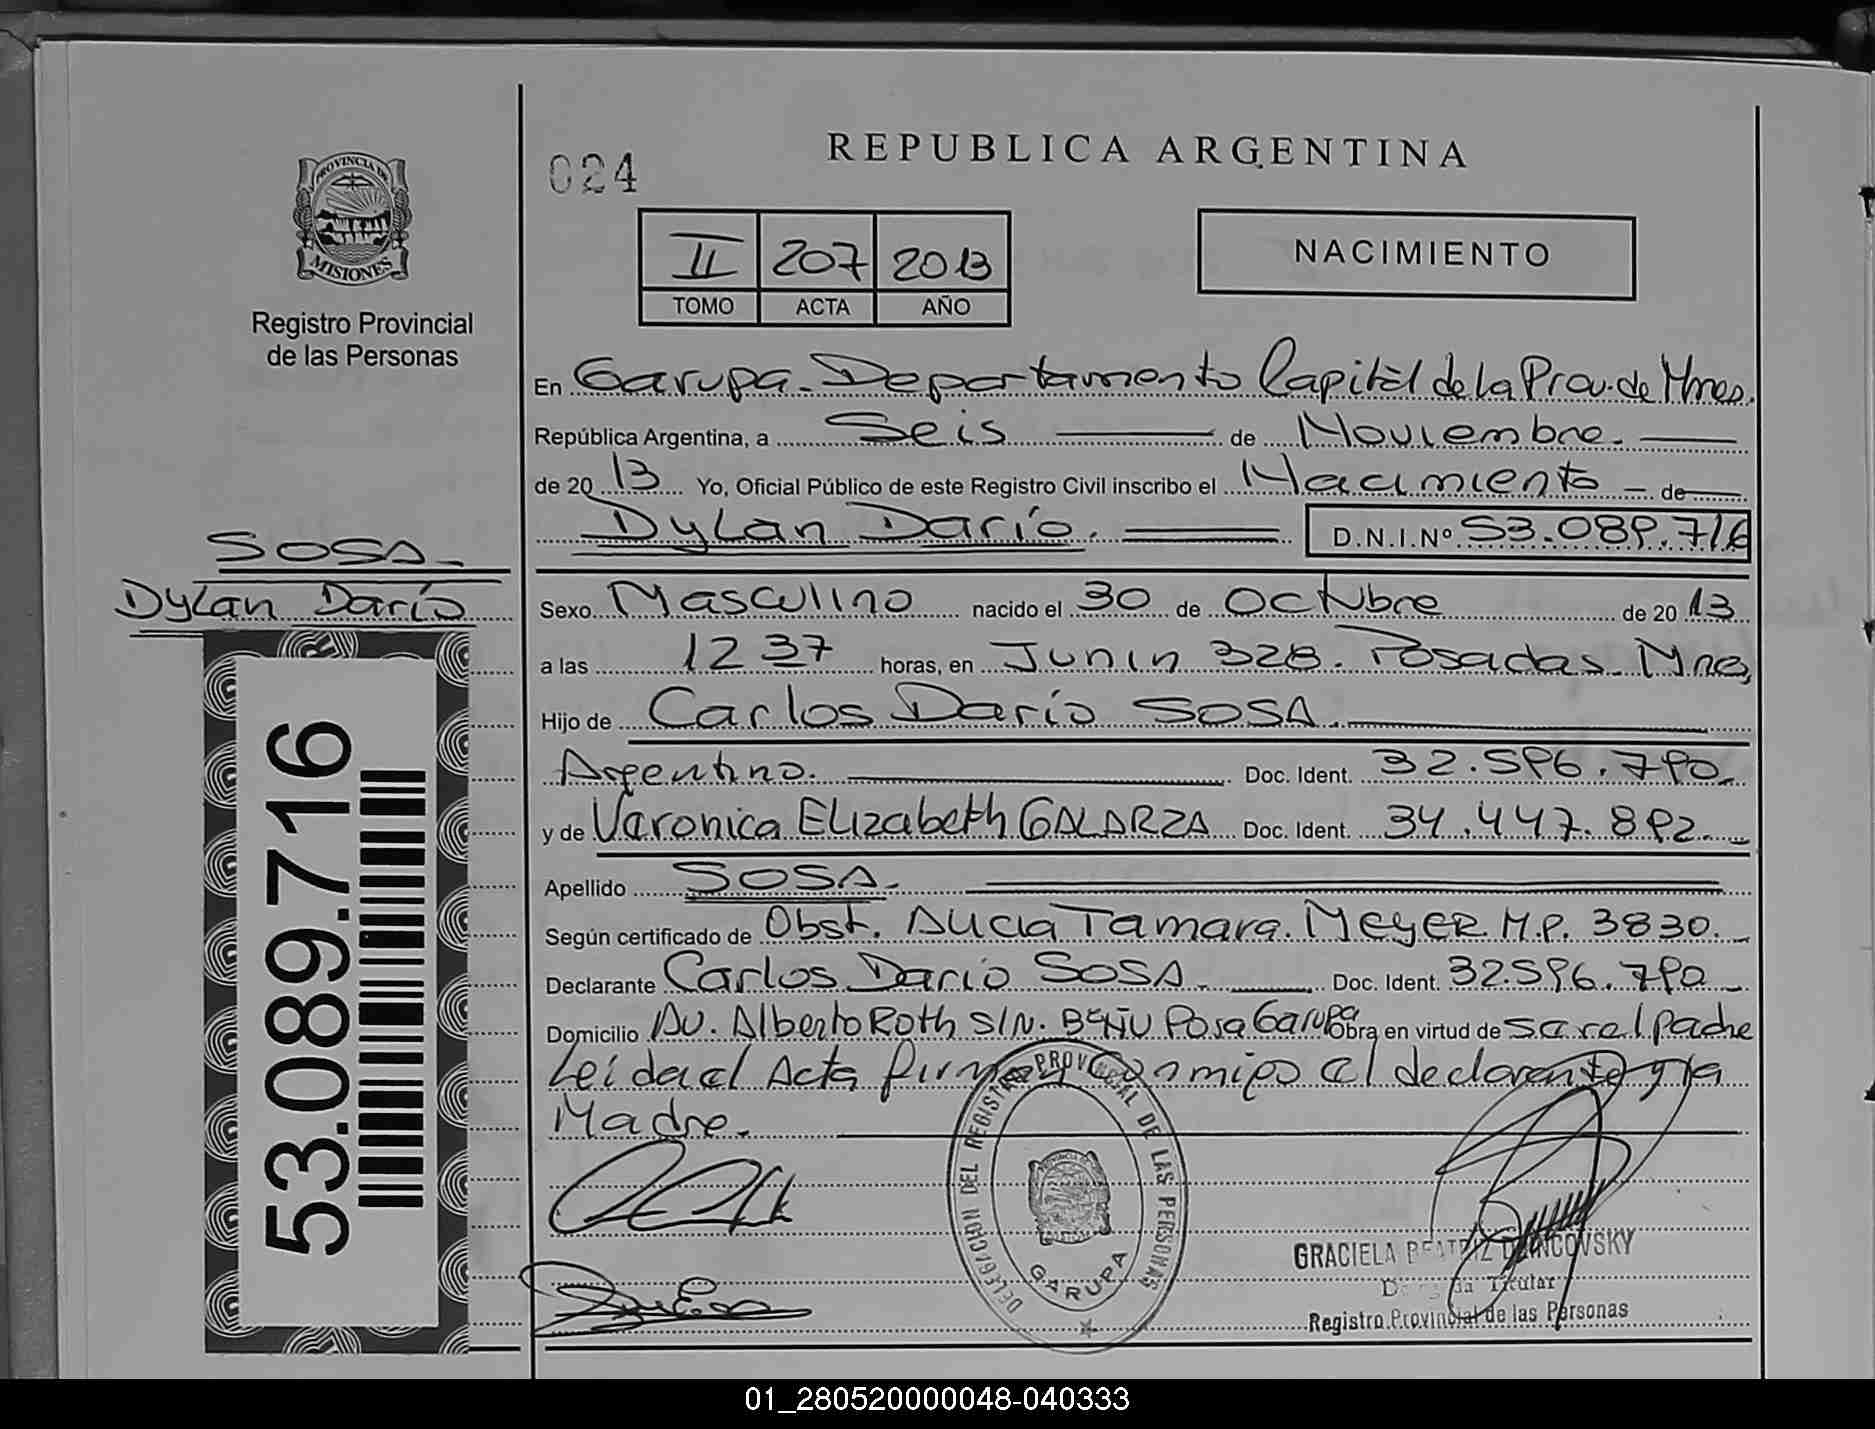 PROVINCIA DE
MISIONES
Registro Provincial
de las Personas
SOSA.
Dylan Darío
53.089.716
024
REPUBLICA ARGENTINA
II 207 2013
TOMO ACTA AÑO
NACIMIENTO
En Garupa. Departamento Capital de la Prov. de Mnes.
República Argentina, a Seis de Noviembre.
de 2013 Yo, Oficial Público de este Registro Civil inscribo el Nacimiento - de
Dylan Darío. D.N.I.Nº 53.089.716
Sexo Masculino nacido el 30 de Octubre de 2013
a las 12 37 horas, en Junin 328. Posadas. Mnes,
Hijo de Carlos Darío SOSA.
Argentino. Doc. Ident. 32.596.790.
y de Veronica Elizabeth GALARZA Doc. Ident. 34.447.892.
Apellido SOSA.
Según certificado de Obst. Alicia Tamara. MEYER. M.P. 3830.
Declarante Carlos Dario SOSA. Doc. Ident. 32.596.790
Domicilio Av. Alberto Roth S/N. Bº Ñu Pora Garupa Obra en virtud de ser el padre
Leída el Acta firman conmigo el declarante y la
Madre.
DELEGACION DEL REGISTRO PROVINCIAL DE LAS PERSONAS
GARUPA
GRACIELA BEATRIZ
Titular
Registro Provincial de las Personas
01_280520000048-040333